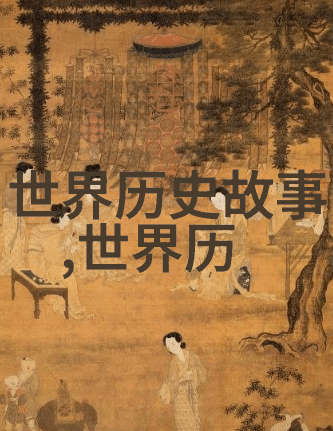 世界历史故事
,世界历